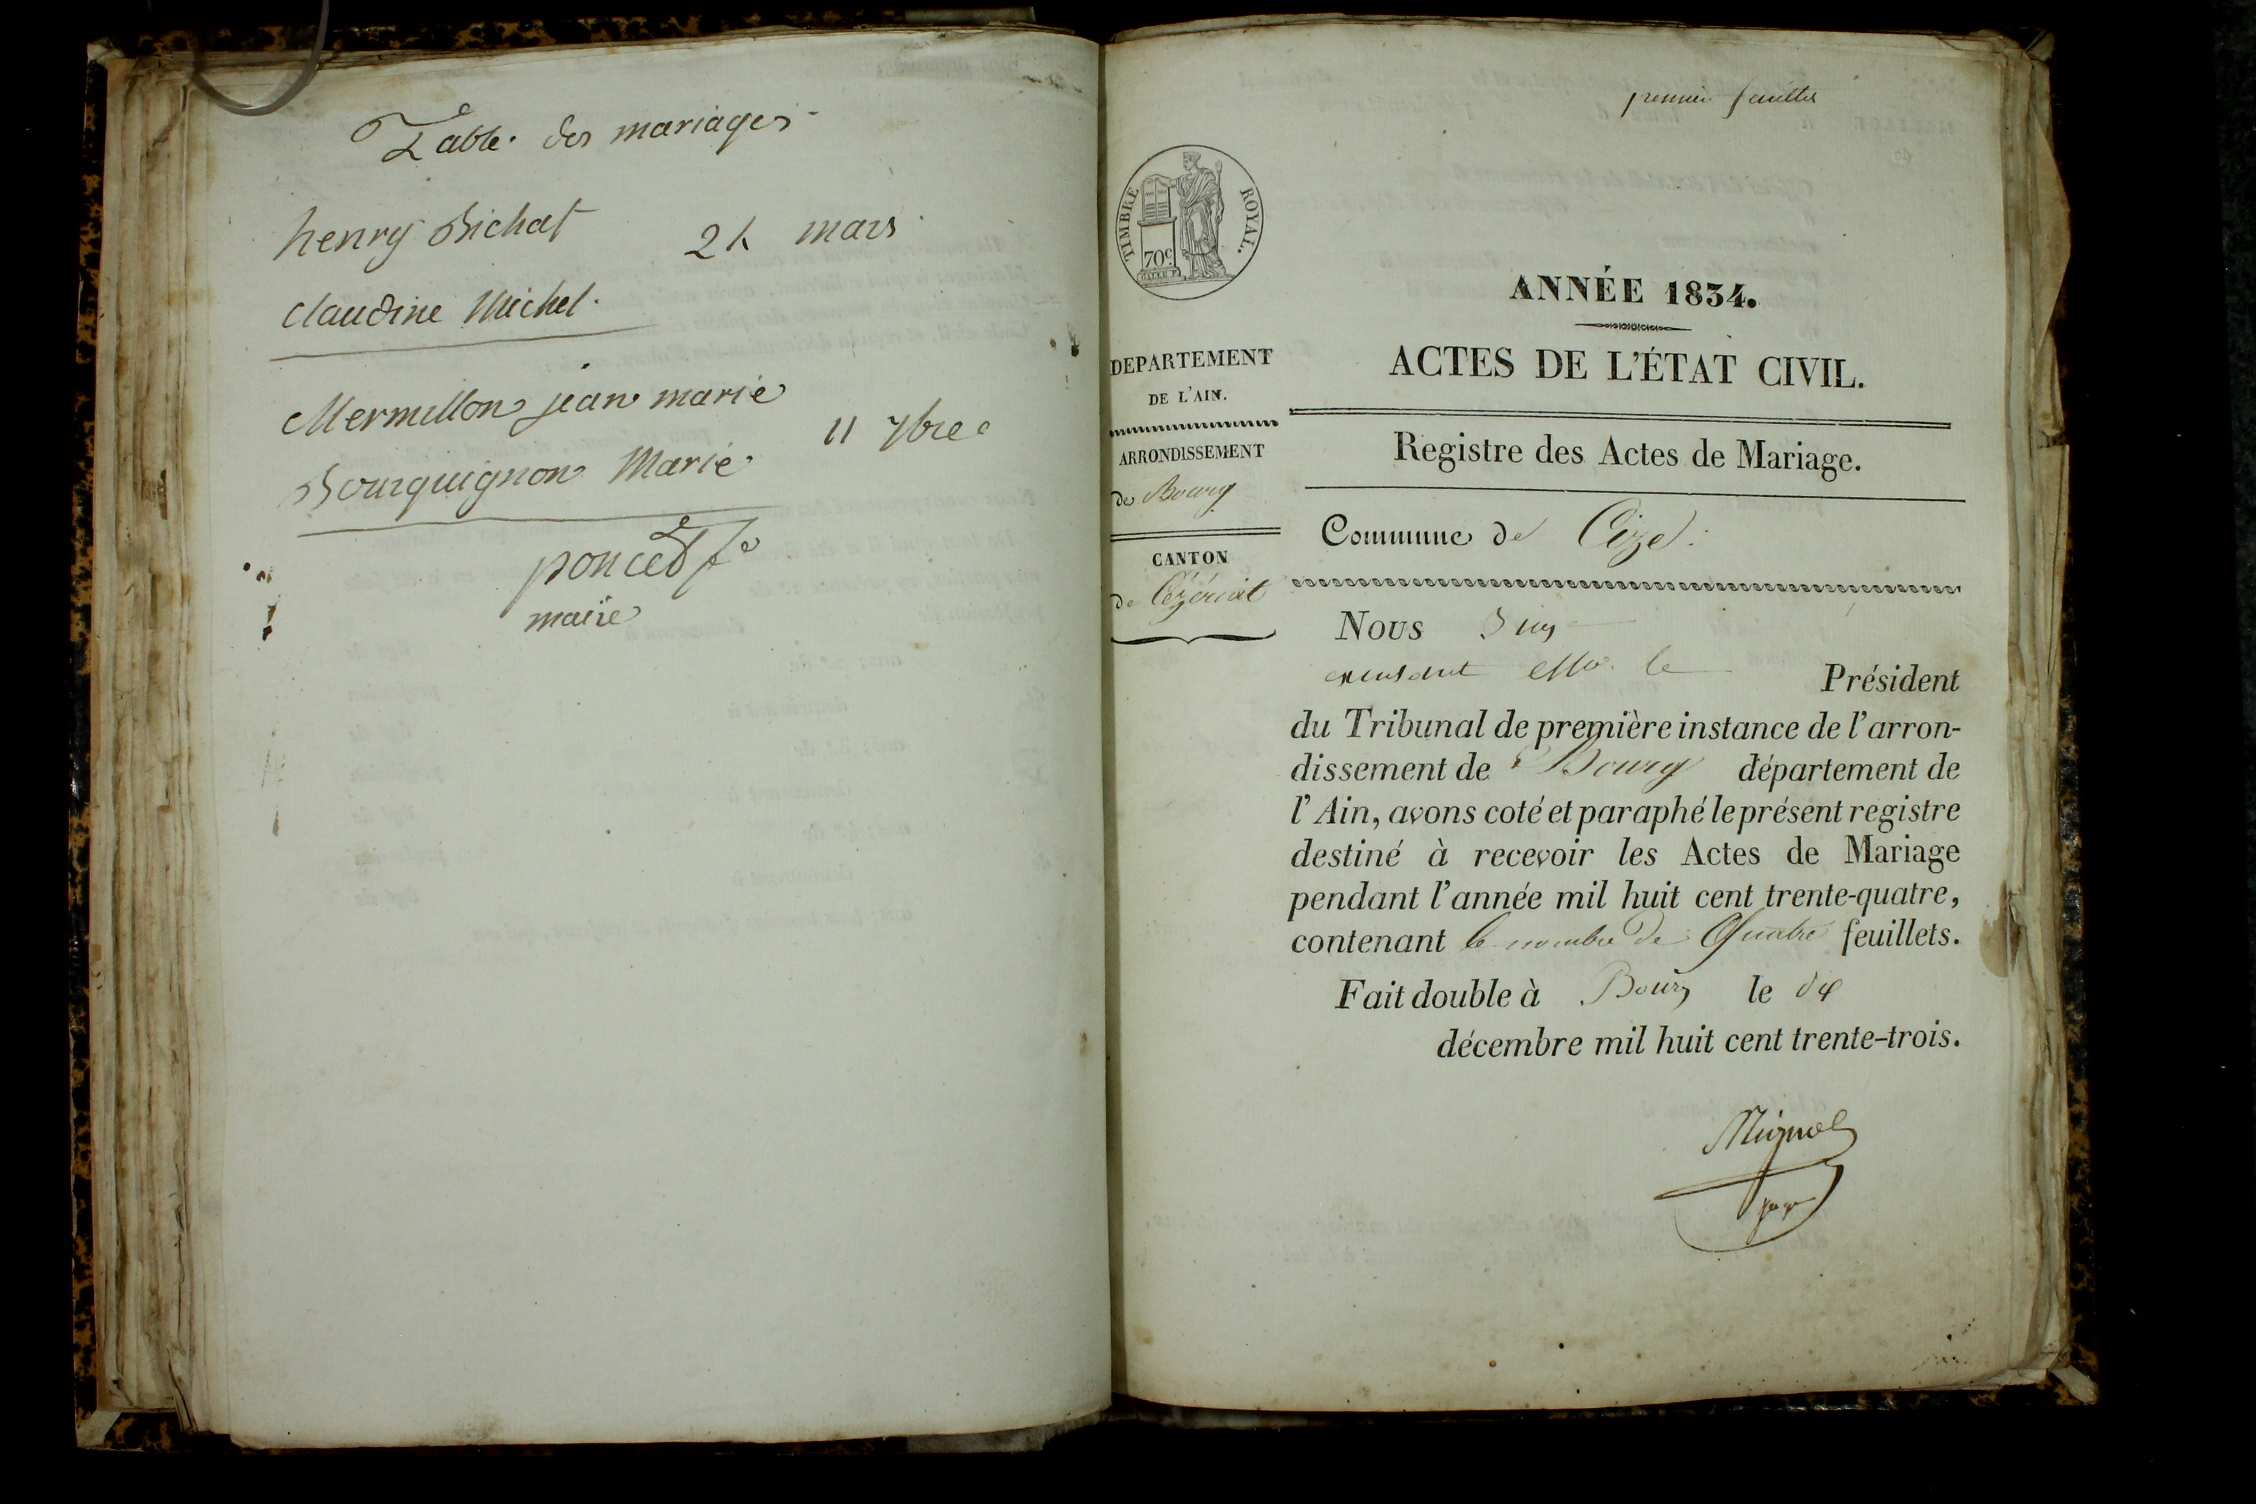 Table des mariages
henry Bichat
21 mars
Claudine Michel
Mermillon jean marie
11 7bre
Bourguignon Marie
poncet
maire
premier feuillet
TIMBRE ROYAL.
70c
ANNÉE 1834.
ACTES DE L'ÉTAT CIVIL.
DEPARTEMENT
DE L'AIN.
ARRONDISSEMENT
de Bourg
CANTON
de Cézériat
Registre des Actes de Mariage.
Commune de Cize
Nous
le Président
du Tribunal de première instance de l'arron-
dissement de Bourg département de
l'Ain, avons coté et paraphé le présent registre
destiné à recevoir les Actes de Mariage
pendant l'année mil huit cent trente-quatre,
contenant le nombre de Quatre feuillets.
Fait double à Bourg le
décembre mil huit cent trente-trois.